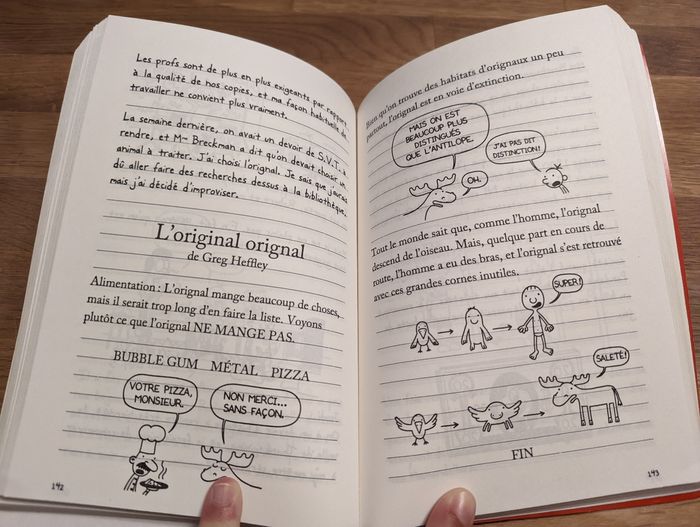 Les profs sont de plus en plus exigeants par rapport
à la qualité de nos copies, et ma façon habituelle de
travailler ne convient plus vraiment.
La semaine dernière, on avait un devoir de S.V.T. à
rendre, et Mme Breckman a dit qu'on devait choisir un
animal à traiter. J'ai choisi l'orignal. Je sais que j'aurais
dû aller faire des recherches dessus à la bibliothèque,
mais j'ai décidé d'improviser.
L'original orignal
de Greg Heffley
Alimentation : L'orignal mange beaucoup de choses,
mais il serait trop long d'en faire la liste. Voyons
plutôt ce que l'orignal NE MANGE PAS.
BUBBLE GUM MÉTAL PIZZA
VOTRE PIZZA,
MONSIEUR.
NON MERCI...
SANS FAÇON.
142
Bien qu'on trouve des habitats d'orignaux un peu
partout, l'orignal est en voie d'extinction.
MAIS ON EST
BEAUCOUP PLUS
DISTINGUÉS
QUE L'ANTILOPE.
J'AI PAS DIT
DISTINCTION!
OH.
Tout le monde sait que, comme l'homme, l'orignal
descend de l'oiseau. Mais, quelque part en cours de
route, l'homme a eu des bras, et l'orignal s'est retrouvé
avec ces grandes cornes inutiles.
SUPER!
SALETÉ!
FIN
143